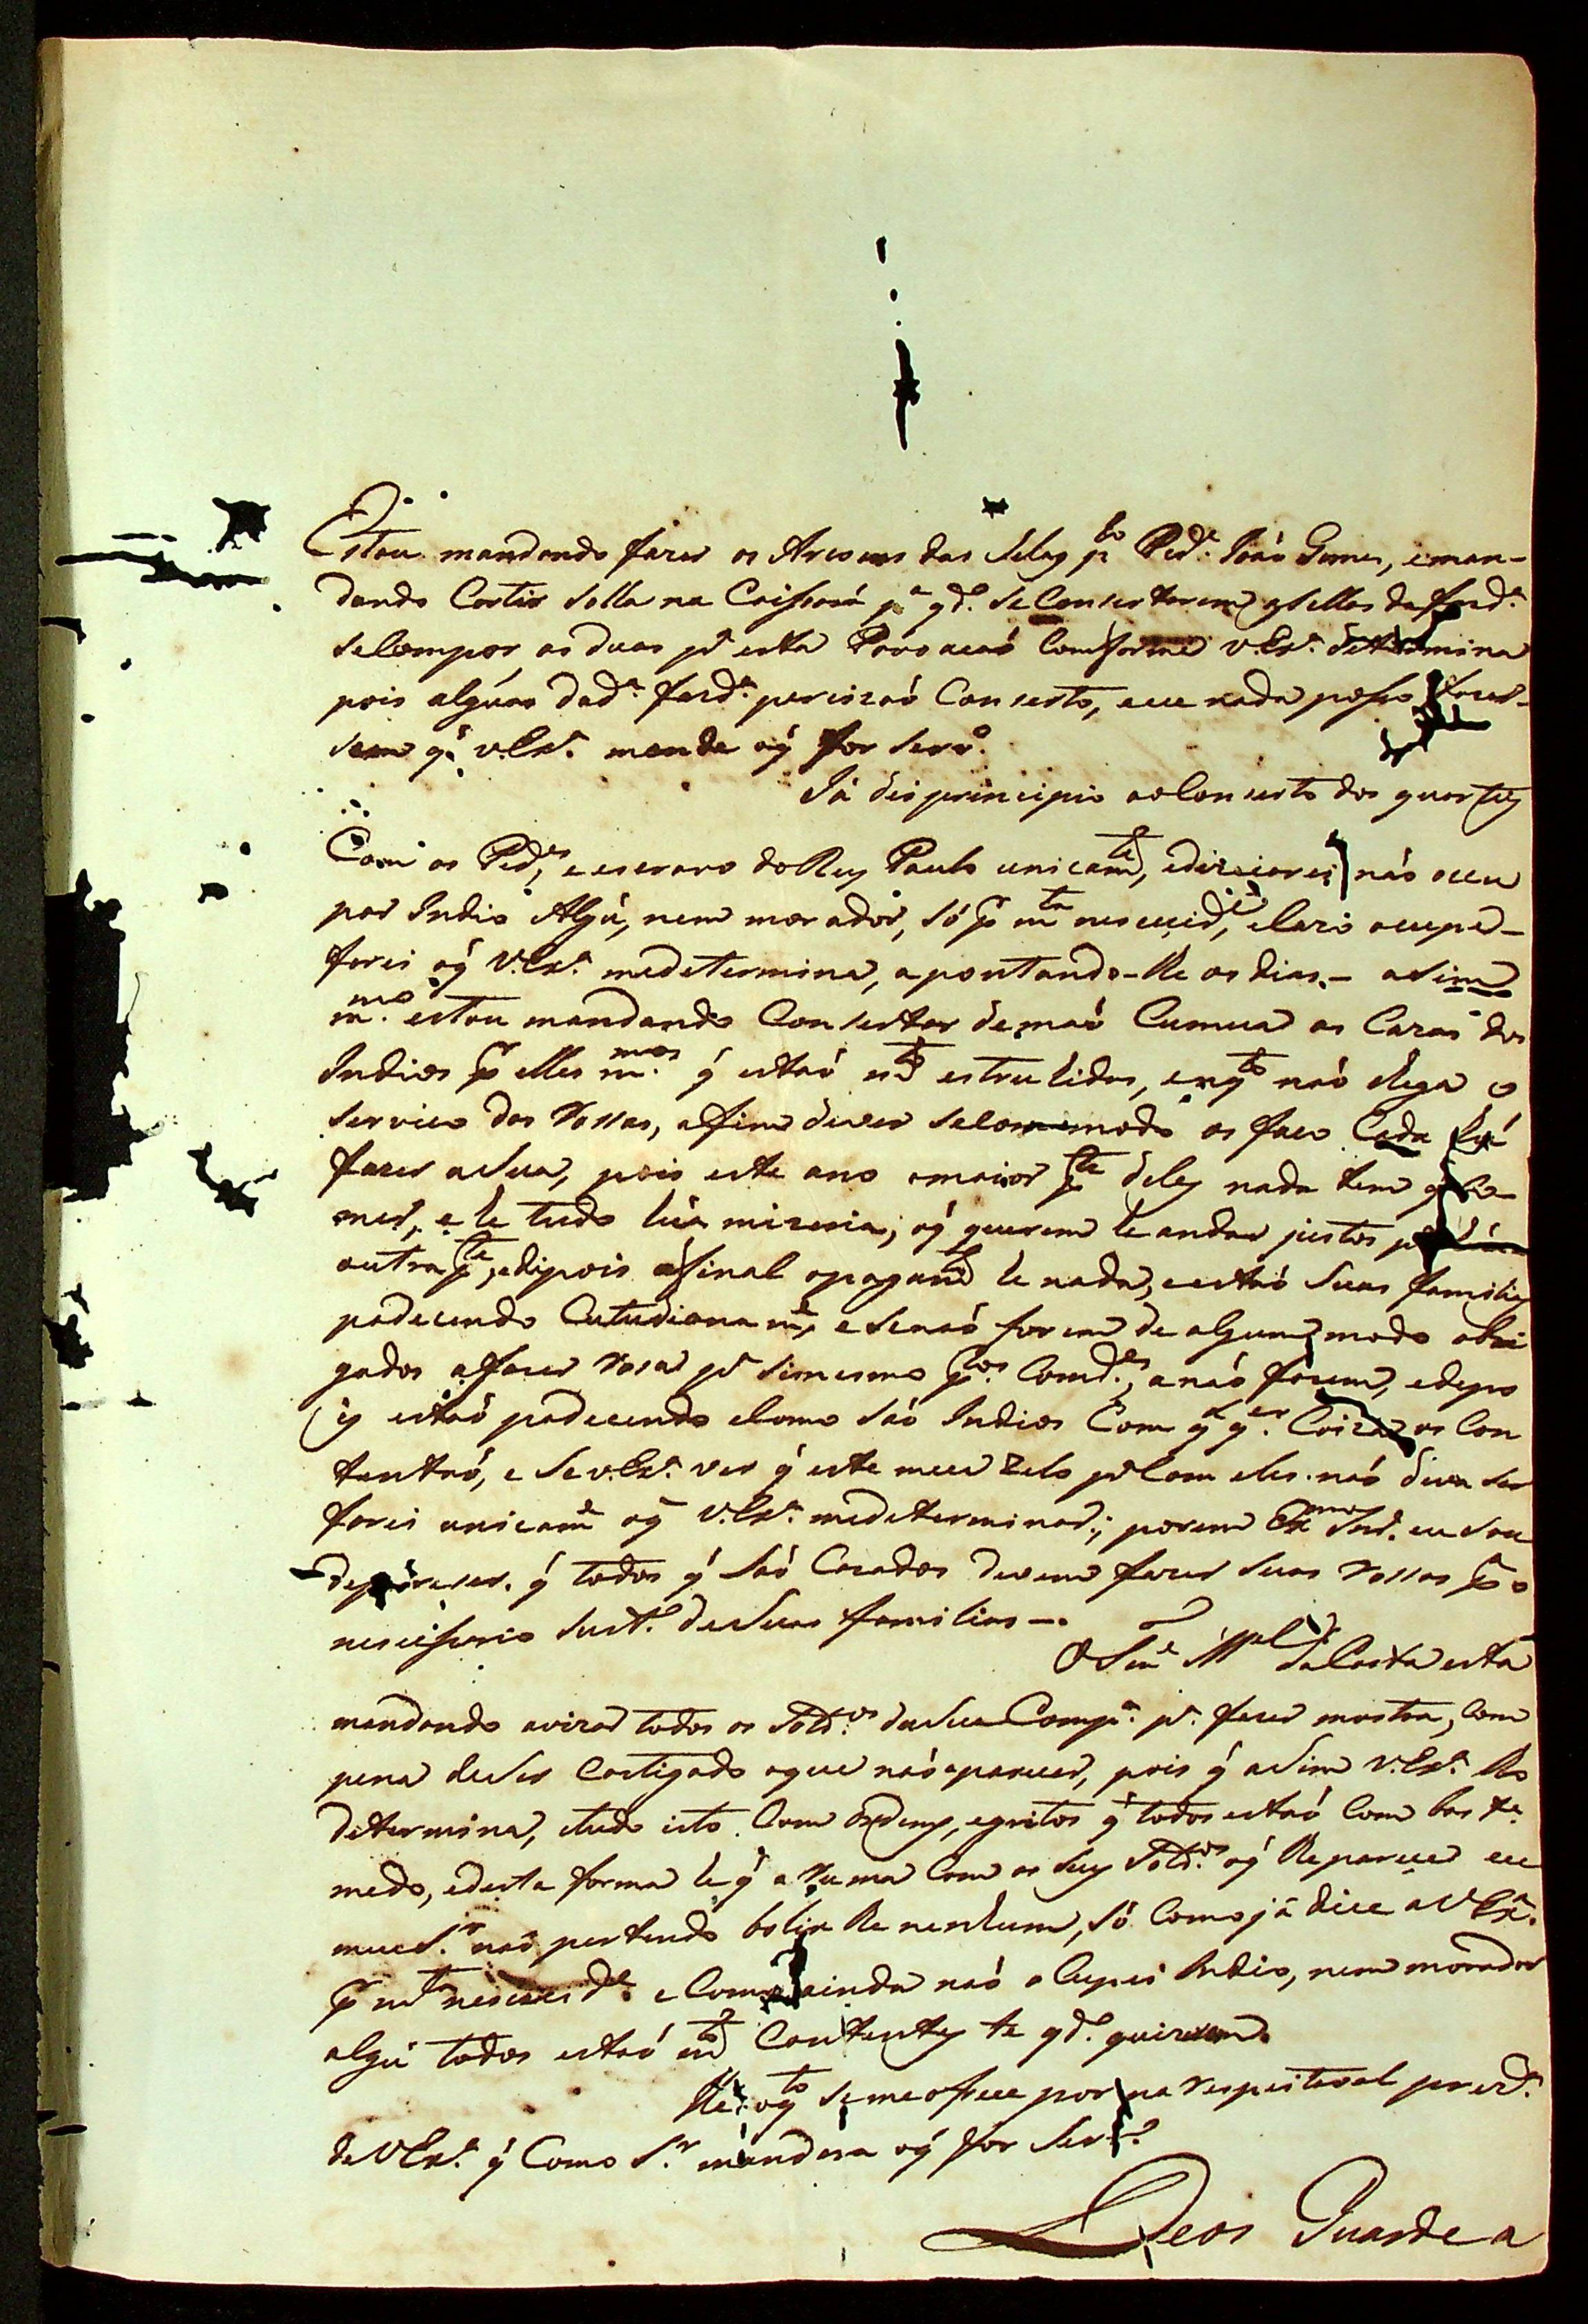 Estou mandando fazer os Aresoens das Selas p.lo Ped.e João Gomes, e man-
dando Cortir solla na Caissará p.a q.do se Consertarem as sellas da fazd.a
se Compor as duas p.a esta Povoacaó Comforme V Ex.a detremina
pois algúas da d.a fazd.a percizaó Conserto, e eu nada posso fazer
sem q̃ V. Ex.a mande o q̃ for serv.o
Já dei principio ao Conserto dos quarteis
Com os Ped.es, e escravo do Rey Paulo unicam.te, e não ocu
par Indio Algũ, nem morador, só p.r m.ta nescecid.e, e lario ocupa-
farei o q̃ V. Ex.a me determina, apontando-lhe os dias. - asim
m.mo estou mandando Consertar de maó Cumua as Cazas dos
Indios p.r elles m.mos q̃ estaó m.to estruhidas, e en q.to naó chega o
servico das Rossas, afim de ver se Comodo os faco Cada hũ
fazer a Sua, pois este ano a maior p.te deles nada tem q̃ Co-
mer, e he tudo húa mizeria; o q̃ querem he andar juntos p.a húa
outra p.te, e dipois afinal o pagam.to he nada, e estaó suas familias
padecendo Cutudianam.te, e se naó forem de algum modo obri
gados a fazer Rosas p.a simesmo p.los Comd.es, a náo fazem, e depo
is estaó padecendo e Como sáo Indios Com q.l q.er Coiza os Con
tentaó, e se V. Ex.a ver q̃ este meu Zelo p.a Com eles náo deva ser
farei unicam.te o q̃ V. Ex.a me determinar; porem Ex.mo Snr. eu sou
de parecer q̃ todos q̃ saó Cazados devem fazer suas Rossas p.a o
nescissario sust.o de Suas familias -
O Ten.e M.el da Costa está
mandando avizar todos os Sold.os da Sua Comp.a p.a fazer mostra, Com
pena de Ser Castigado o que náo aparecer, pois q̃ asim V. Ex.a lho
determina, e tudo isto Com Ordens, e gritos q̃ todos estaó Com bas.te
medo, e desta forma he q̃ aruma Com os seus Sold.os o q̃ lhe parece eu
meu S.r naó pertendo bolir lhe nenhum, só Como já dice a V Ex.a
p.r m.ta nescecid.e e Como ainda naó o Cupei Indio, nem morador
algũ todos estaó m.to Contentes te q.do quizerem.
Hé o q.to se me ofrece por na respeitavel prez.a
de V Ex.a q̃ Como S.r mandara o q̃ for Serv.o
Deos Guarde a